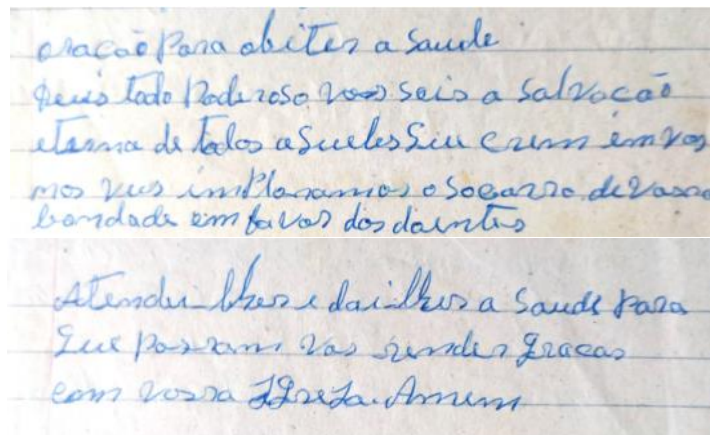 oração Para obiter a Saude
Deus todo Poderoso vos seis a Salvacaõ
eterna de todos aqueles que crem em vos
nos vus imPloramos o Socorro de vossa
bondade em favor dos doentes
Atendei-lhes e dai-lhes a Saude Para
que possam vos render graças
com vossa IgreJa. Amem